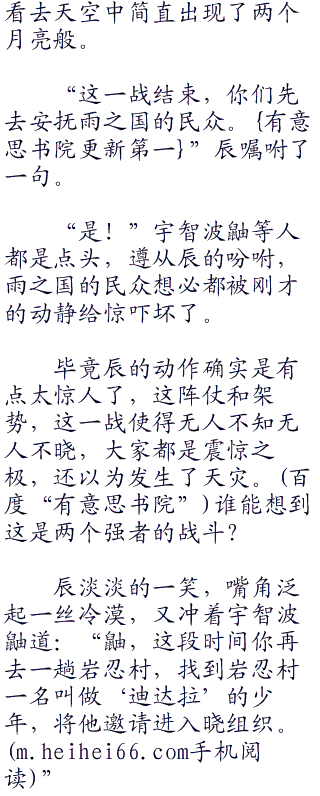 看去天空中简直出现了两个
月亮般。
“这一战结束，你们先
去安抚雨之国的民众。{有意
思书院更新第一}”辰嘱咐了
一句。
“是！”宇智波鼬等人
都是点头，遵从辰的吩咐，
雨之国的民众想必都被刚才
的动静给惊吓坏了。
毕竟辰的动作确实是有
点太惊人了，这阵仗和架
势，这一战使得无人不知无
人不晓，大家都是震惊之
极，还以为发生了天灾。(百
度“有意思书院”)谁能想到
这是两个强者的战斗？
辰淡淡的一笑，嘴角泛
起一丝冷漠，又冲着宇智波
鼬道：“鼬，这段时间你再
去一趟岩忍村，找到岩忍村
一名叫做‘迪达拉’的少
年，将他邀请进入晓组织。
(m.heihei66.com手机阅
读)”